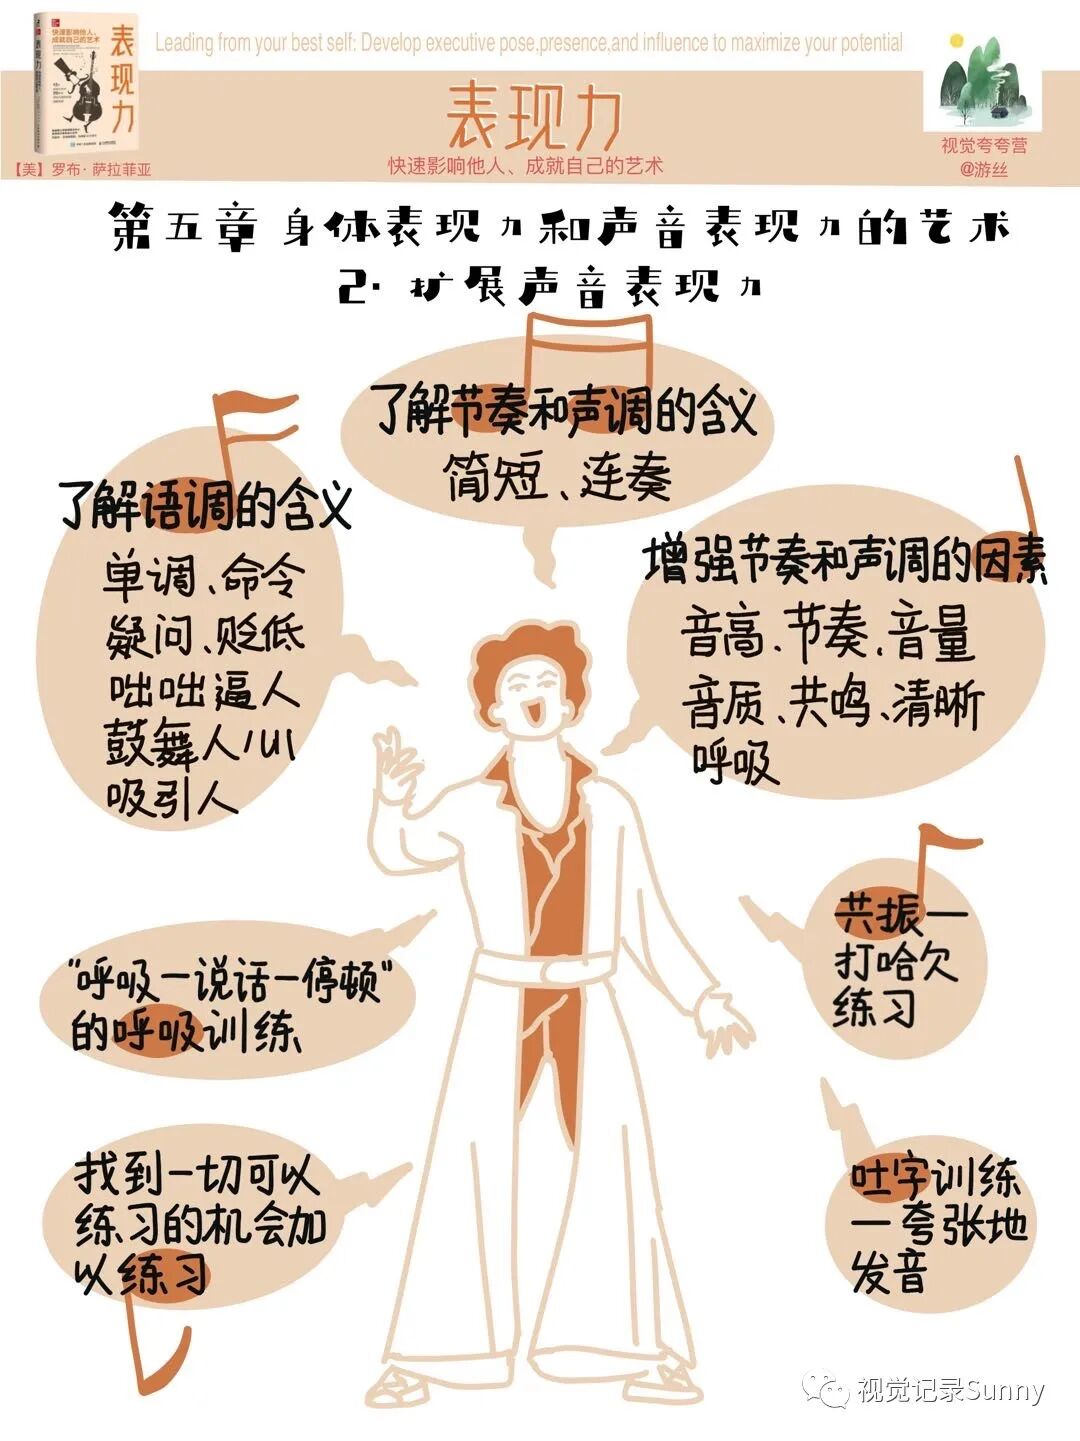 Leading from your best self: Develop executive pose,presence,and influence to maximize your potential
快速影响他人、
成就自己的艺术
表现力
【美】罗布·萨拉菲亚
表现力
快速影响他人、成就自己的艺术
视觉夸夸营
@游丝
第五章 身体表现力和声音表现力的艺术
2. 扩展声音表现力
了解节奏和声调的含义
简短、连奏
了解语调的含义
单调、命令
疑问、贬低
咄咄逼人
鼓舞人心
吸引人
增强节奏和声调的因素
音高、节奏、音量
音质、共鸣、清晰
呼吸
"呼吸—说话—停顿"
的呼吸训练
共振—
打哈欠
练习
找到一切可以
练习的机会加
以练习
吐字训练
—夸张地
发音
视觉记录Sunny